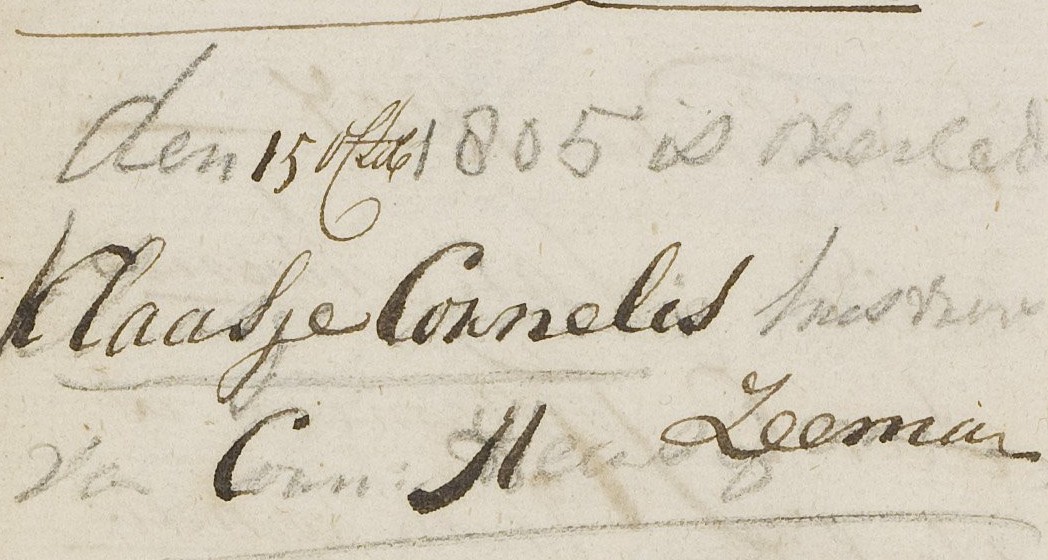 den 15 Octb 1805 is overled
Klaasje Cornelis huisvrou
van Corn: M Zeeman